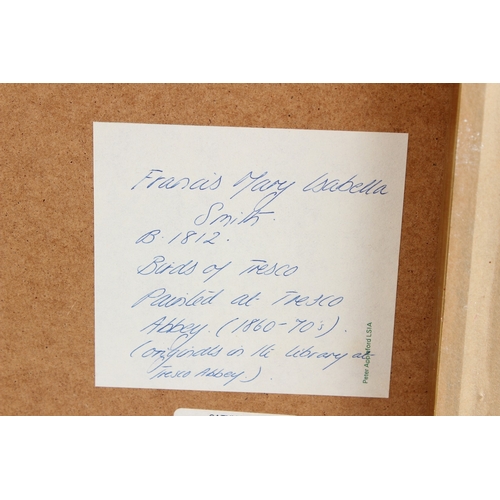 Francis Mary Isabella
Smith.
B. 1812.
Birds of Tresco
Painted at Tresco
Abbey. (1860-70's).
(originals in the library at
Tresco Abbey.)
Peter Appleford LSIA